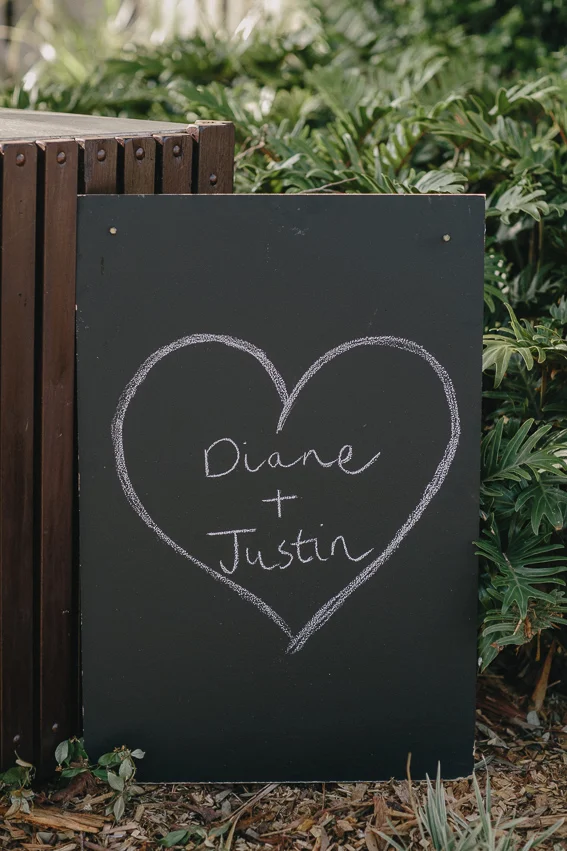 Diane
+
Justin